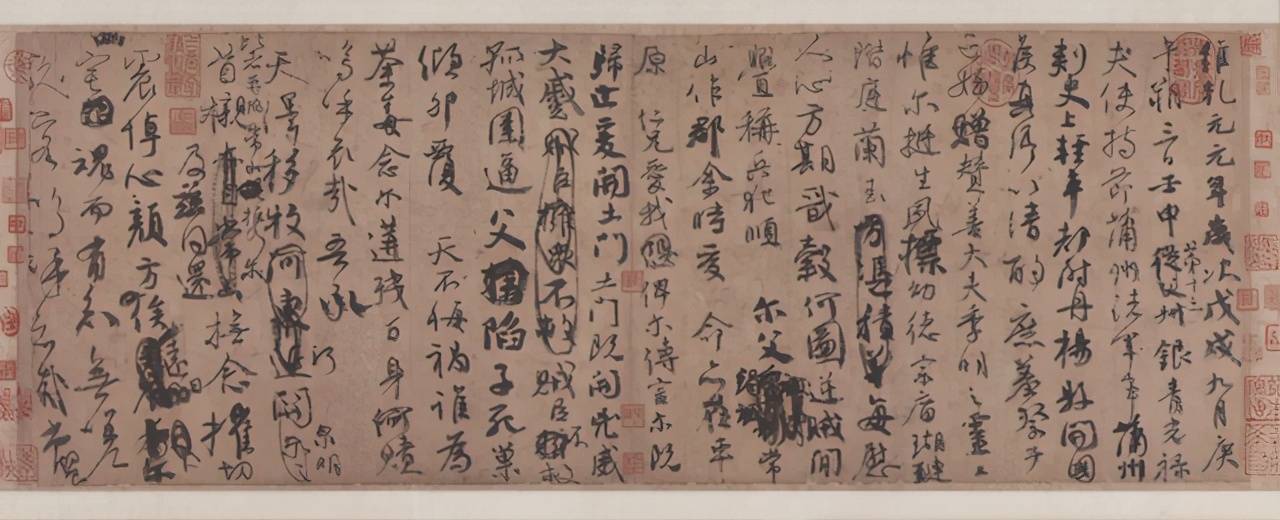 維乾元元年歲次戊戌九月庚
午朔三日壬申從父
第十三
叔銀青光祿
夫使持節蒲州諸軍事蒲州
刺史上輕車都尉丹楊縣開國
侯真卿以清酌庶羞祭于
亡姪贈贊善大夫季明之靈曰
惟爾挺生夙標幼德宗廟瑚璉
階庭蘭玉方憑積善每慰
人心方期戩穀何圖逆賊閒
釁稱兵犯順爾父常
山作郡余時受命亦在平
原仁兄愛我俾爾傳言爾既
歸止爰開土門土門既開凶威
大蹙賊臣擁眾不救賊臣不救
孤城圍逼父陷子死巢
傾卵覆天不悔禍誰為
荼毒念爾遘殘百身何贖
嗚呼哀哉吾承
天澤移牧河東近河關泉明
比者再陷常山攜爾
首櫬亦自常山撫念摧切
及茲同還
震悼心顏方俟遠日
宅魂而有知無嗟
久客嗚呼哀哉尚饗